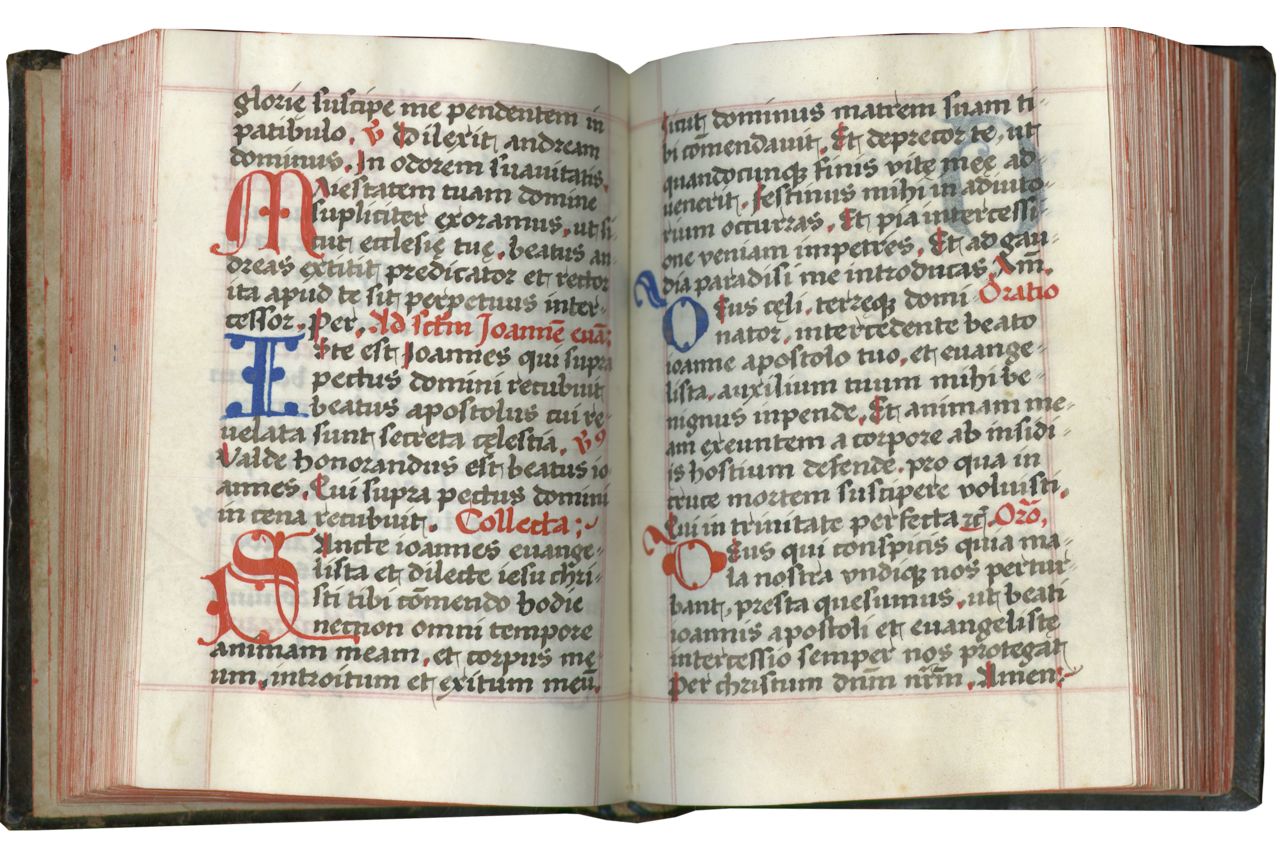 glorię suscipe me pendentem in
patibulo. ℟ Dilexit andream
dominus. In odorem suavitatis.
Maiestatem tuam domine
supliciter exoramus, ut si-
cut ecclesię tuę, beatus an
dreas extitit predicator et rector
ita apud te sit perpetuus inter-
cessor. Per. Ad sctm Joannē euā:
Iste est Joannes qui supra
pectus domini recubuit
beatus apostolus cui re-
uelata sunt secreta cęlestia.
Valde honorandus est beatus io
annes. Qui supra pectus domini
in cena recubuit. Collecta:
Sancte ioannes euange-
lista et dilecte iesu chri-
sti tibi cōmendo hodie
necnon omni tempore
animam meam, et corpus mę-
um, introitum et exitum meū.
sicut dominus matrem suam ti-
bi cōmendauit. Et deprecor te, ut
quandocunqꝫ finis vitę meę ad-
uenerit. festinus mihi in adiuto-
rium occurras. Et pia intercessi-
one veniam impetres. Et ad gau-
dia paradisi me introducas Am̄.
Deus cęli, terręqꝫ domi Oratio
nator, intercedente beato
ioanne apostolo tuo, et euange-
lista, auxilium tuum mihi be-
nignus inpende. Et animam me-
am exeuntem a corpore ab insidi-
is hostium defende. pro qua in
cruce mortem suscipere voluisti.
Qui in trinitate perfecta ⁊c̄. Orō.
Deus qui conspicis quia ma-
la nostra vndiqꝫ nos pertur-
bant, presta quesumus, ut beati
ioannis apostoli et euangelistę
intercessio semper nos protegat
Per christum dn̄m nr̄m. Amen: